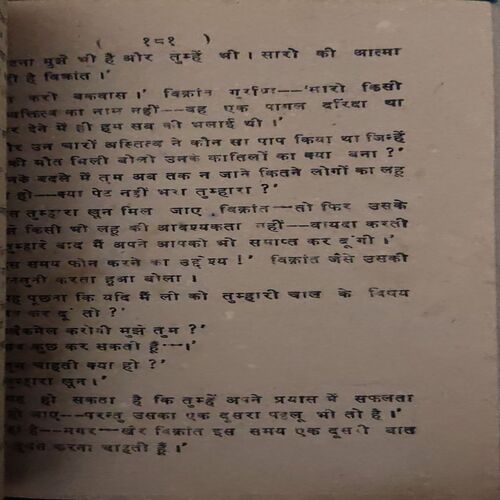 ( १८१ )
मुझे भी है और तुम्हें भी । सारो की आत्मा
है विक्रांत ।'
करो बकवास ।' विक्रांत गुर्राया--'मारो किसी
का नाम नहीं--वह एक पागल दरिंदा था
देने में ही हम सब की भलाई थी ।'
उन चारों अस्तित्व ने कौन सा पाप किया था जिन्हें
की मौत मिली बोलो उनके कातिलों का क्या बना ?'
बदले में तुम अब तक न जाने कितने लोगों का लहू
हो--क्या पेट नहीं भरा तुम्हारा ?'
तुम्हारा खून मिल जाए विक्रांत--तो फिर उसके
किसी भी लहू की आवश्यकता नहीं--वायदा करती
तुम्हारे बाद मैं अपने आपको भी समाप्त कर दूंगी ।'
समय फोन करने का उद्देश्य !' विक्रांत जैसे उसकी
करता हुआ बोला ।
पूछना कि यदि मैं ली को तुम्हारी चाल के विषय
कर दूं तो ?'
करोगी मुझे तुम ?'
कुछ कर सकती हूँ--।'
चाहती क्या हो ?'
तुम्हारा खून ।'
हो सकता है कि तुम्हें अपने प्रयास में सफलता
हो जाए--परन्तु उसका एक दूसरा पहलू भी तो है ।'
है--मगर--खैर विक्रांत इस समय एक दूसरी बात
करना चाहती हूँ ।'